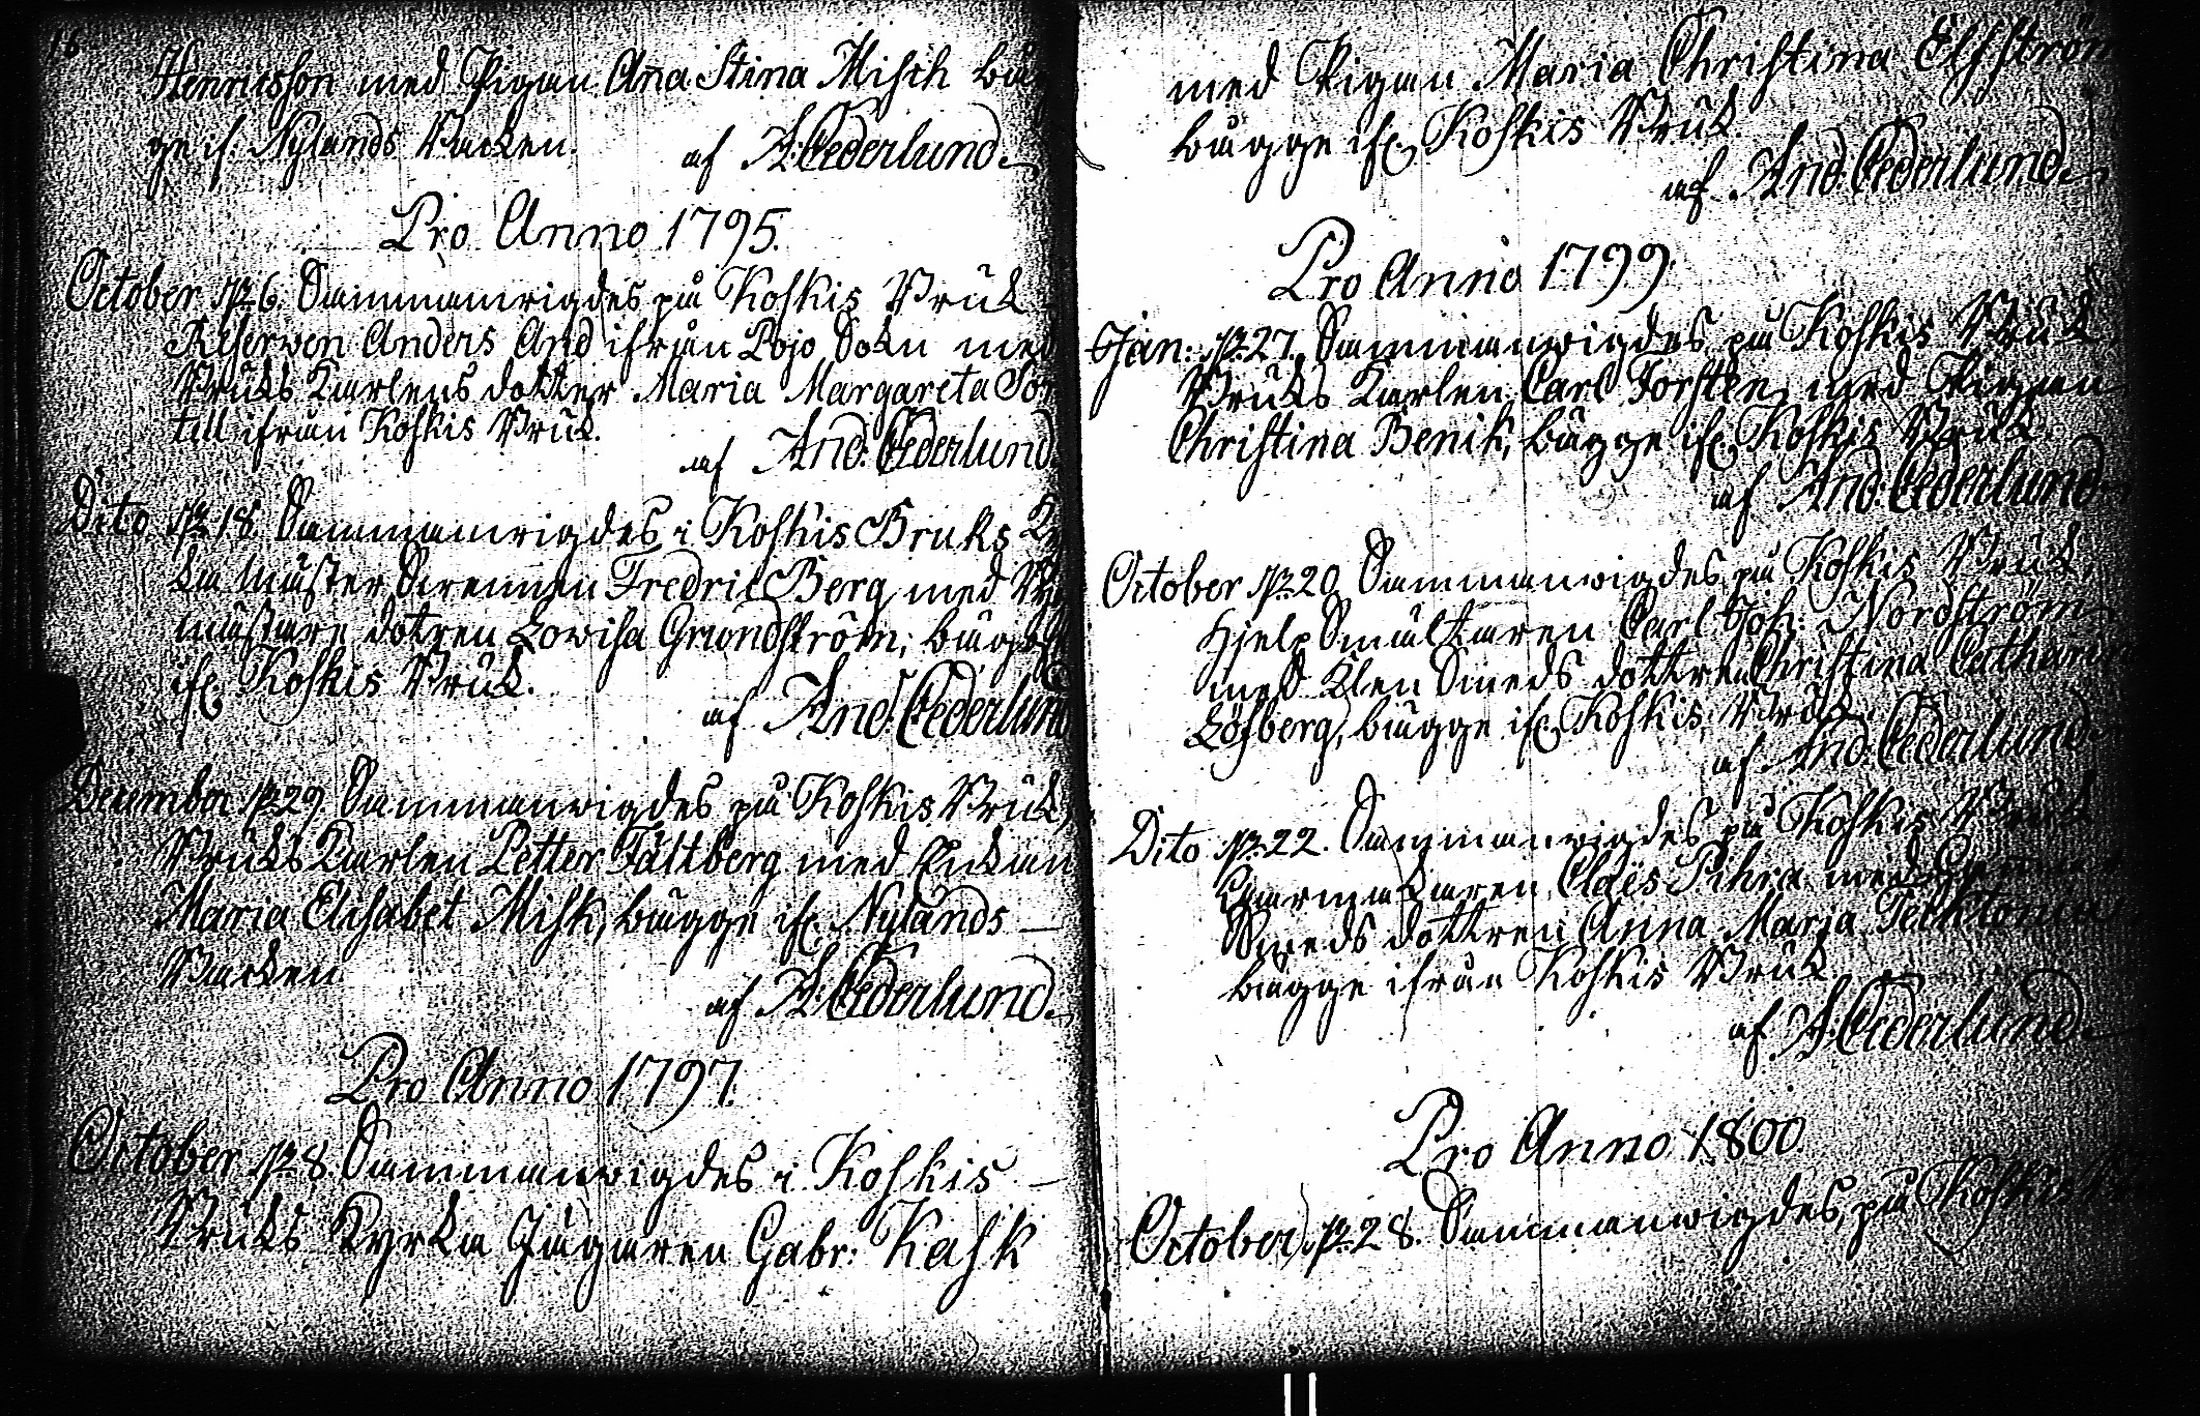 16
Henricsson med Pigan Aña Stina Misch båg
ge if: Nylands Backen.
af A: Cederlund.
Pro Anno 1795.
October d. 6. Sammanvigdes på Koskis Bruk
Reserven Anders And ifrån Pojo Sokn med
Bruks Karlens dotter Maria Margareta
till ifrån Koskis Bruk.
af And: Cederlund.
Dito d. 18. Sammanvigdes i Koskis Bruks
ka Mäster Svennen Fredric Berg med
mästare dotren Lovisa Grundström; både
ifr. Koskis Bruk.
af And: Cederlund
December d. 29. Sammanvigdes på Koskis Bruk,
Bruks Karlen Petter Fältberg med Enkan
Maria Elisabet Misk, bägge ifr. Nylands
Backen
af A: Cederlund.
Pro Anno 1797.
October d. 8. Sammanvigdes i Koskis
Bruks Kyrka Jägaren Gabr: Kask
med Pigan Maria Christina Elfström
bägge ifr. Koskis Bruk.
af And: Cederlund.
Pro Anno 1799.
Jan: d. 27. Sammanvigdes på Koskis Bruk
Bruks Karlen Carl Forsten, med Pigan
Christina Benik, bägge ifr. Koskis Bruk.
af And: Cederlund
October d. 20 Sammanvigdes på Koskis Bruk,
Hjelp Smältaren Carl Joh: Nordström
med Klen Smeds dottren Christina Catharin
Löfberg, bägge ifr. Koskis Bruk.
af And: Cederlund
Dito d. 22. Sammanvigdes på Koskis Bruk
Garmakaren Claës Pihra med
Smeds dottren Anna Maria
bägge ifrån Koskis Bruk
af A: Cederlund.
Pro Anno 1800.
October d. 28. Sammanvigdes, på Koskis